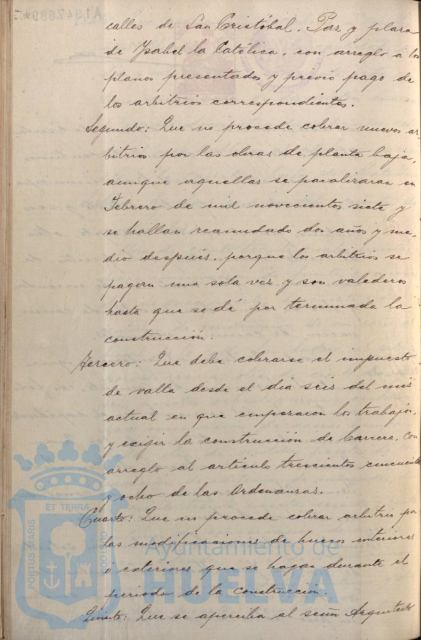 calles de San Cristóbal, Paz y plaza
de Ysabel la Católica, con arreglo á los
planos presentados y previo pago de
los arbitrios correspondientes.
Segundo: Que no procede cobrar nuevos ar-
bitrios por las obras de planta baja,
aunque aquellas se paralizaran en
Febrero de mil novecientos siete y
se hallan reanudado dos años y me-
dio después, porque los arbitrios se
pagan una sola vez y son valederos
hasta que se dé por terminada la
construcción.
Tercero: Que debe cobrarse el impuesto
de valla desde el dia seis del mes
actual en que empezaron los trabajos,
y exigir la construcción de barrera, con
arreglo al artículo trescientos cincuenta
y ocho de las Ordenanzas.
Cuarto: Que no procede cobrar arbitrio por
las modificaciones de huecos interiores
ó exteriores que se hagan durante el
periodo de la construcción.
Quinto: Que se aperciba al señor Arquitecto
PORTUS MARIS
ET TERRÆ
CUSTODIA
Ayuntamiento de
HUELVA